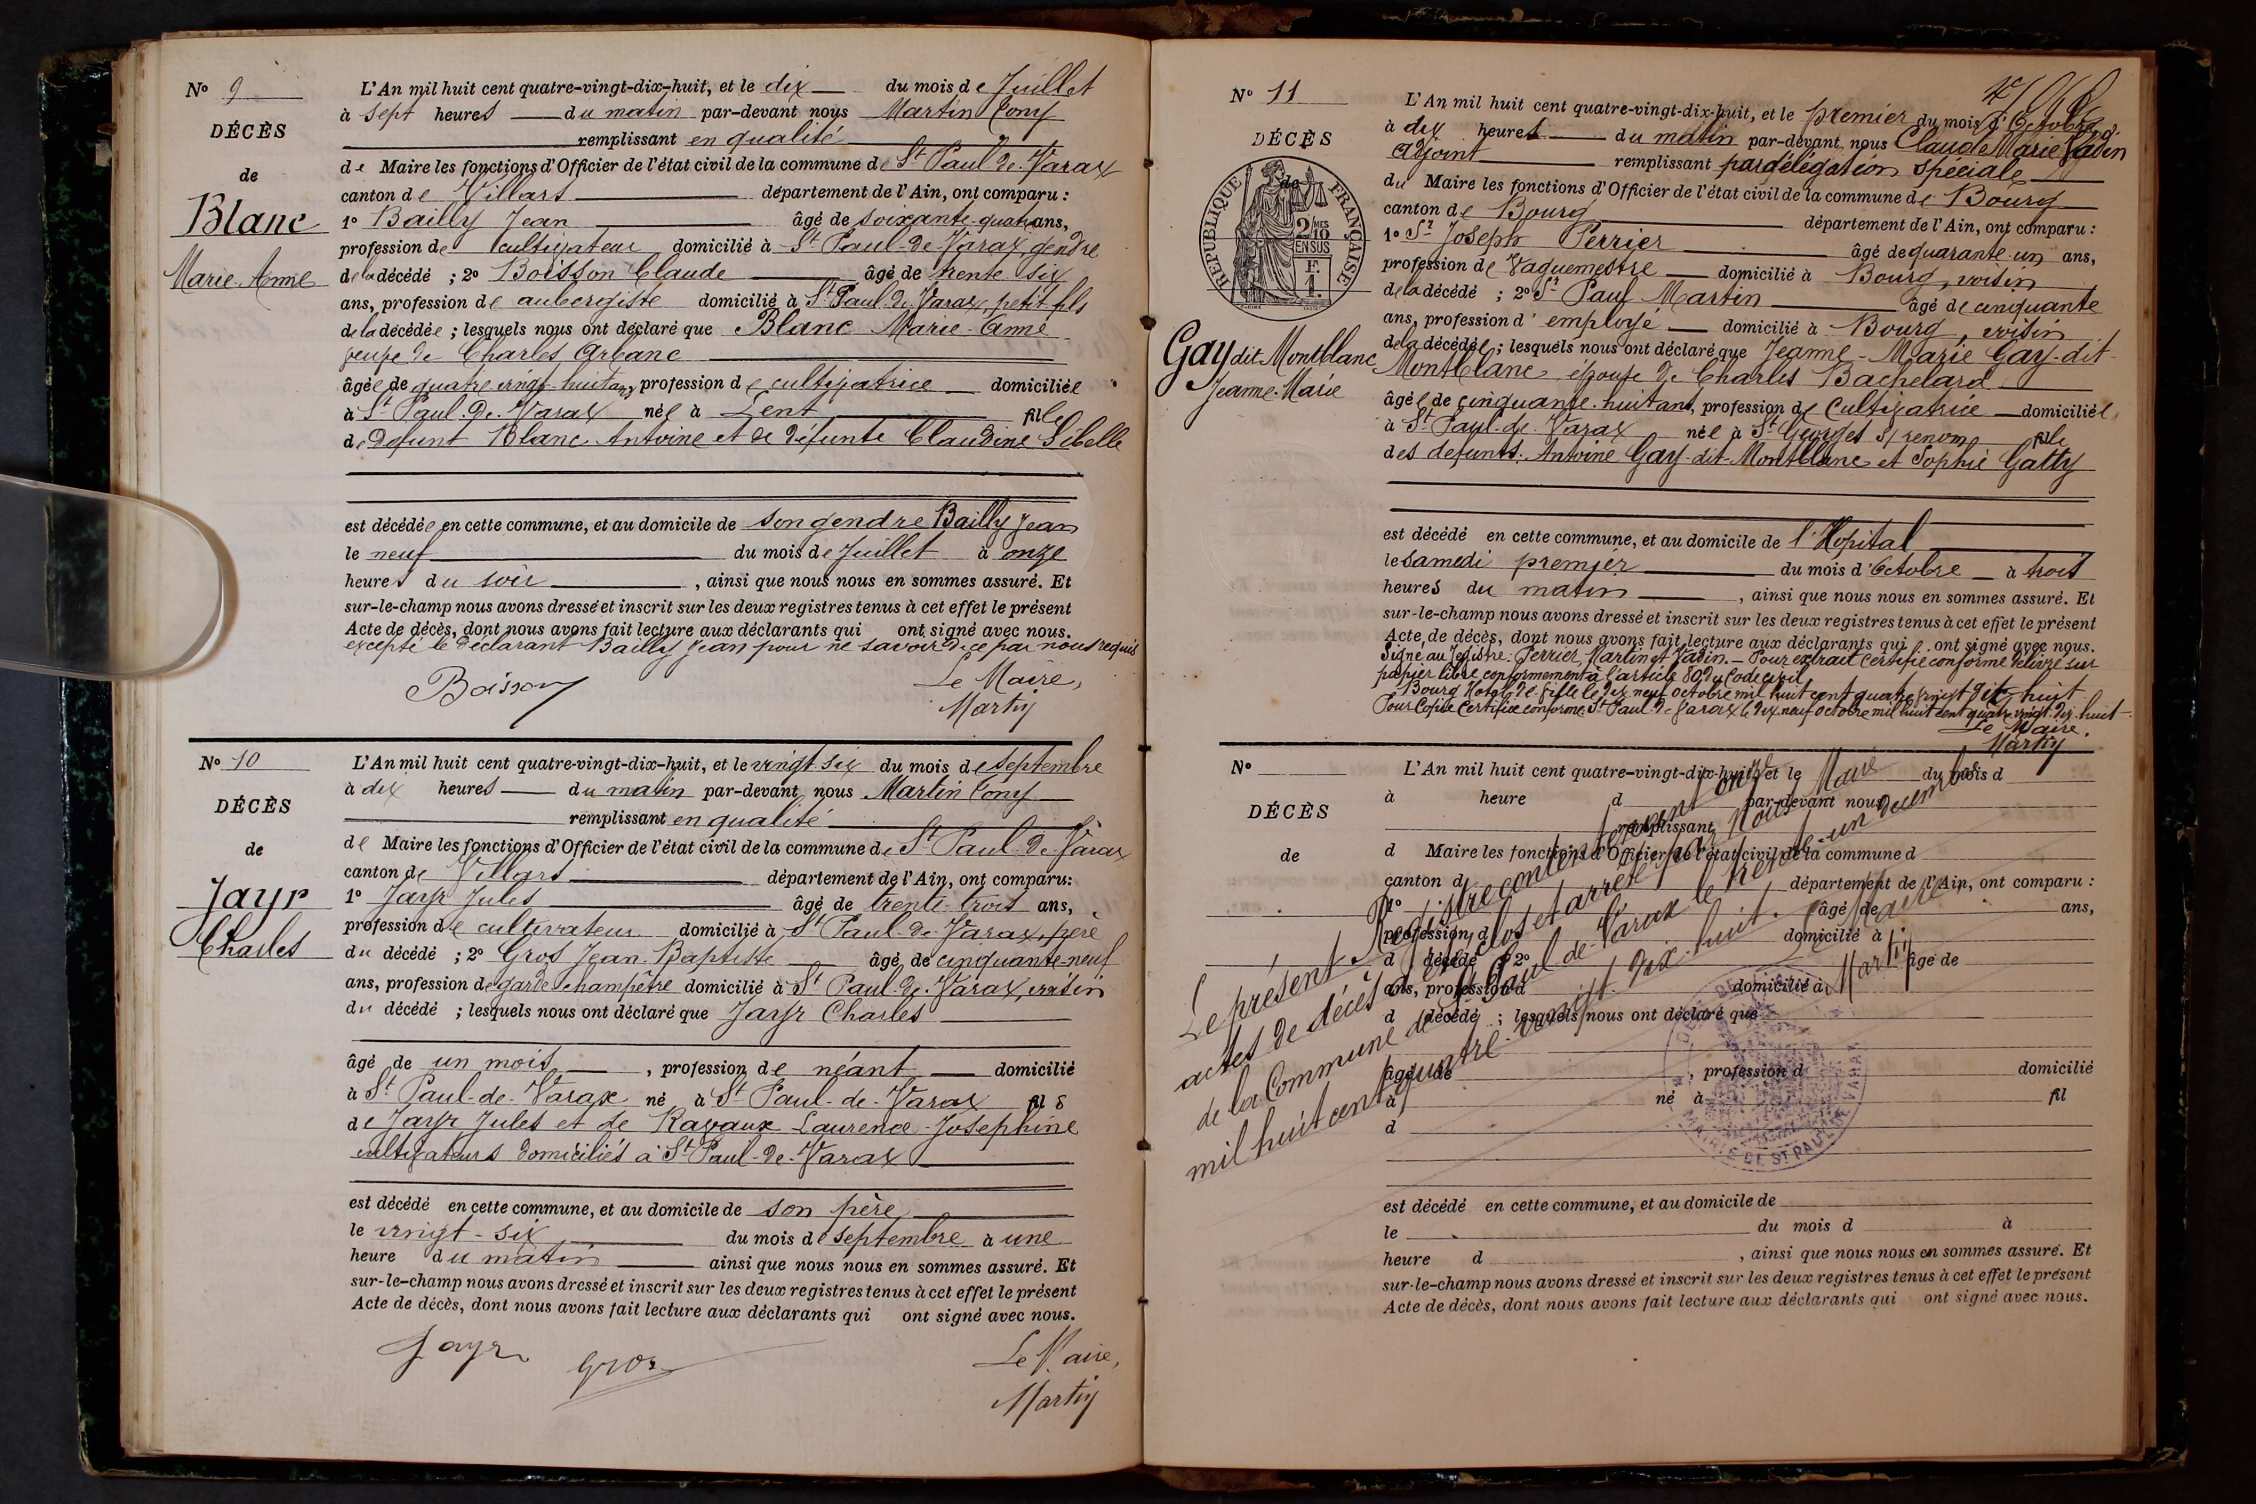 N° 9
DÉCÈS
de
Blanc
Marie-Anne
L'An mil huit cent quatre-vingt-dix-huit, et le dix du mois de Juillet
à sept heures du matin par-devant nous Martin Cony
remplissant en qualité
de Maire les fonctions d'Officier de l'état civil de la commune de St Paul-de-Varax
canton de Villars département de l'Ain, ont comparu :
1° Bailly Jean âgé de soixante-quatre ans,
profession de cultivateur domicilié à St Paul-de-Varax, gendre
de la décédé ; 2° Boisson Claude âgé de trente six
ans, profession de aubergiste domicilié à St Paul-de-Varax, petit fils
de la décédée ; lesquels nous ont déclaré que Blanc Marie-Anne
veuve de Charles Arbanc
âgée de quatre vingt-huit ans, profession de cultivatrice domiciliée
à St Paul-de-Varax née à Lent fille
de défunt Blanc Antoine et de défunte Claudine Sibelle
est décédée en cette commune, et au domicile de son gendre Bailly Jean
le neuf du mois de Juillet à onze
heures du soir , ainsi que nous nous en sommes assuré. Et
sur-le-champ nous avons dressé et inscrit sur les deux registres tenus à cet effet le présent
Acte de décès, dont nous avons fait lecture aux déclarants qui ont signé avec nous.
excepté le déclarant Bailly Jean pour ne savoir de ce par nous requis
Boisson
Le Maire,
Martin
N° 10
DÉCÈS
de
Jayr
Charles
L'An mil huit cent quatre-vingt-dix-huit, et le vingt-six du mois de septembre
à dix heures du matin par-devant nous Martin Cony
remplissant en qualité
de Maire les fonctions d'Officier de l'état civil de la commune de St Paul-de-Varax
canton de Villars département de l'Ain, ont comparu :
1° Jayr Jules âgé de trente-trois ans,
profession de cultivateur domicilié à St Paul-de-Varax, père
du décédé ; 2° Gros Jean-Baptiste âgé de cinquante-neuf
ans, profession de garde champêtre domicilié à St Paul-de-Varax, voisin
du décédé ; lesquels nous ont déclaré que Jayr Charles
âgé de un mois , profession de néant domicilié
à St Paul-de-Varax né à St Paul-de-Varax fils
de Jayr Jules et de Ravaux Laurence-Josephine
cultivateurs domiciliés à St Paul-de-Varax
est décédé en cette commune, et au domicile de son père
le vingt-six du mois de septembre à une
heure du matin ainsi que nous nous en sommes assuré. Et
sur-le-champ nous avons dressé et inscrit sur les deux registres tenus à cet effet le présent
Acte de décès, dont nous avons fait lecture aux déclarants qui ont signé avec nous.
Jayr Gros
Le Maire,
Martin
N° 11
DÉCÈS
de
RÉPUBLIQUE FRANÇAISE
2/10 MES
EN SUS
F.
1.
Gay dit Montblanc
Jeanne-Marie
L'An mil huit cent quatre-vingt-dix-huit, et le premier du mois d'Octobre
à dix heures du matin par-devant nous Claude Marie Vadin
adjoint remplissant par délégation spéciale
du Maire les fonctions d'Officier de l'état civil de la commune de Bourg
canton de Bourg département de l'Ain, ont comparu :
1° Sr Joseph Perrier âgé de quarante-un ans,
profession de Vaguemestre domicilié à Bourg, voisin
de la décédé ; 2° Sr Paul Martin âgé de cinquante
ans, profession d'employé domicilié à Bourg, voisin
de la décédée ; lesquels nous ont déclaré que Jeanne-Marie Gay-dit-
Montblanc épouse de Charles Bachelard
âgée de cinquante-huit ans, profession de Cultivatrice domiciliée
à St Paul-de-Varax née à St Georges s/ renom fille
des defunts Antoine Gay-dit-Montblanc et Sophie Gatty
est décédé en cette commune, et au domicile de l'Hopital
le samedi premier du mois d'Octobre à trois
heures du matin , ainsi que nous nous en sommes assuré. Et
sur-le-champ nous avons dressé et inscrit sur les deux registres tenus à cet effet le présent
Acte de décès, dont nous avons fait lecture aux déclarants qui ont signé avec nous.
Signé au registre. Perrier, Martin et Vadin. — Pour extrait certifié conforme délivré sur
papier libre conformément à l'article 80 du Code civil
Bourg Hotel de Ville le dix neuf octobre mil huit cent quatre vingt dix-huit
Pour Copie Certifiée conforme St Paul-de-Varax le dix neuf octobre mil huit cent quatre vingt-dix-huit
Le Maire.
Martin
N°
DÉCÈS
de
L'An mil huit cent quatre-vingt-dix-huit, et le du mois d
à heure d par-devant nous
remplissant
d Maire les fonctions d'Officier de l'état civil de la commune d
canton d département de l'Ain, ont comparu :
1° âgé de ans,
profession d domicilié à
d décédé ; 2° âgé de
ans, profession d domicilié à
d décédé ; lesquels nous ont déclaré que
âgé de , profession d domicilié
à né à fil
d
est décédé en cette commune, et au domicile de
le du mois d à
heure d , ainsi que nous nous en sommes assuré. Et
sur-le-champ nous avons dressé et inscrit sur les deux registres tenus à cet effet le présent
Acte de décès, dont nous avons fait lecture aux déclarants qui ont signé avec nous.
Le présent Registre contenant onze
actes de décès a été clos et arrêté par Nous Maire
de la Commune de St Paul-de-Varax le trente-un decembre
mil huit cent quatre-vingt-dix-huit.
Le Maire
Martin
MAIRIE DE ST PAUL DE VARAX